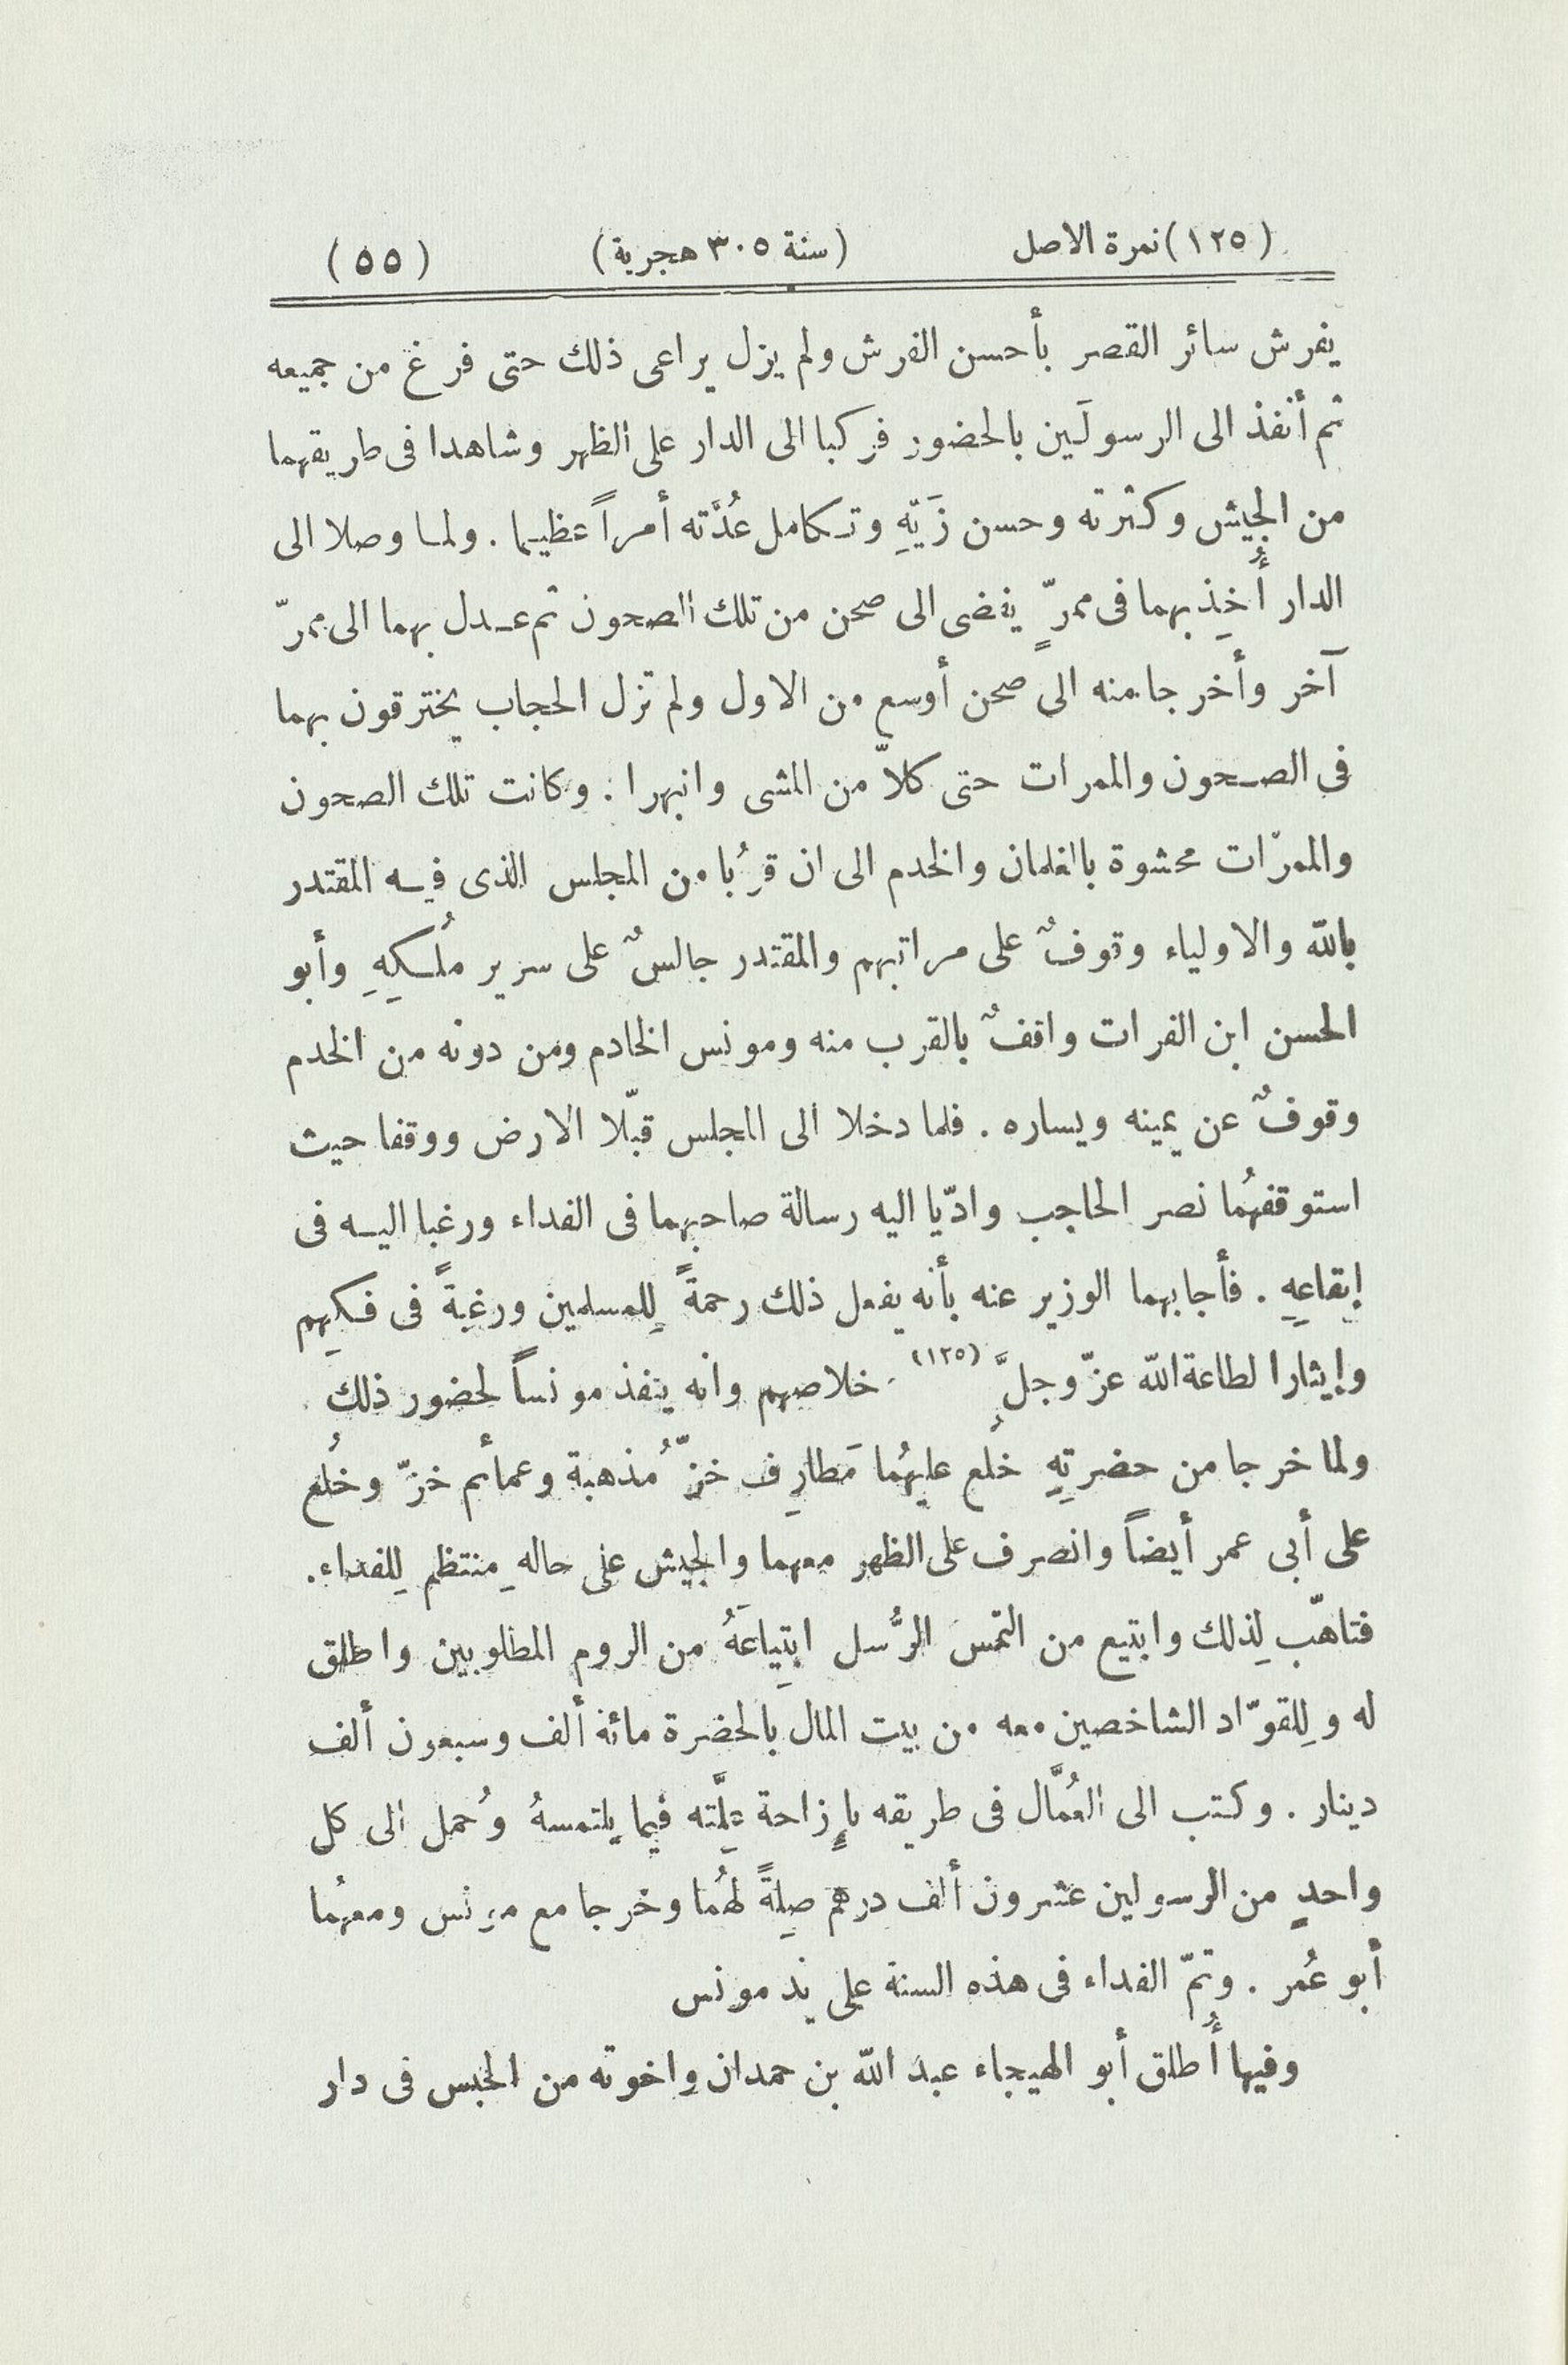 (١٢٥) نمرة الاصل (سنة ٣٠٥ هجرية) (٥٥)
يفرش سائر القصر بأحسن الفرش ولم يزل يراعى ذلك حتى فرغ من جميعه
ثم أنفذ الى الرسولَين بالحضور فركبا الى الدار على الظهر وشاهدا فى طريقهما
من الجيش وكثرته وحسن زَيّهِ وتكامل عُدَّته أمراً عظيما . ولما وصلا الى
الدار أُخِذ بهما فى ممرّ يفضى الى صحن من تلك الصحون ثم عدل بهما الى ممرّ
آخر وأخرجا منه الى صحن أوسع من الاول ولم تزل الحجاب يخترقون بهما
فى الصحون والممرات حتى كلاّ من المشى وانبهرا : وكانت تلك الصحون
والممرّات محشوة بالغلمان والخدم الى ان قرُبا من المجلس الذى فيه المقتدر
بالله والاولياء وقوفٌ على مراتبهم والمقتدر جالسٌ على سرير مُلكِهِ وأبو
الحسن ابن الفرات واقفٌ بالقرب منه ومونس الخادم ومن دونه من الخدم
وقوفٌ عن يمينه ويساره . فلما دخلا الى المجلس قبّلا الارض ووقفا حيث
استوقفهُما نصر الحاجب وادّيا اليه رسالة صاحبهما فى الفداء ورغبا اليه فى
إيقاعِهِ . فأجابهما الوزير عنه بأنه يفعل ذلك رحمةً لِلمسلمين ورغبةً فى فكِهِم
وإيثارا لطاعة الله عزّ وجلَّ (١٢٥) خلاصهم وانه ينفذ مونساً لحضور ذلك .
ولما خرجا من حضرتِهِ خُلع عليهُما مَطارِف خزّ مُذهبة وعمائم خزّ وخُلع
على أبى عمر أيضاً وانصرف على الظهر معهما والجيش على حالهِ منتظم لِلفداء.
فتاهّب لِذلك وابتيع من التمس الرُّسل ابتِياعَهُ من الروم المطلوبين واطلق
له ولِلقوّاد الشاخصين معه من بيت المال بالحضرة مائة ألف وسبعون ألف
دينار . وكتب الى العُمَّال فى طريقه بإزاحة عِلَّته فيما يلتمسهُ وحُمل الى كل
واحدٍ من الرسولين عشرون ألف درهم صِلةً لهُما وخرجا مع مونس ومعهُما
أبو عُمر . وتمّ الفداء فى هذه السنة على يد مونس
وفيها أُطلق أبو الهيجاء عبد الله بن حمدان واخوته من الحبس فى دار